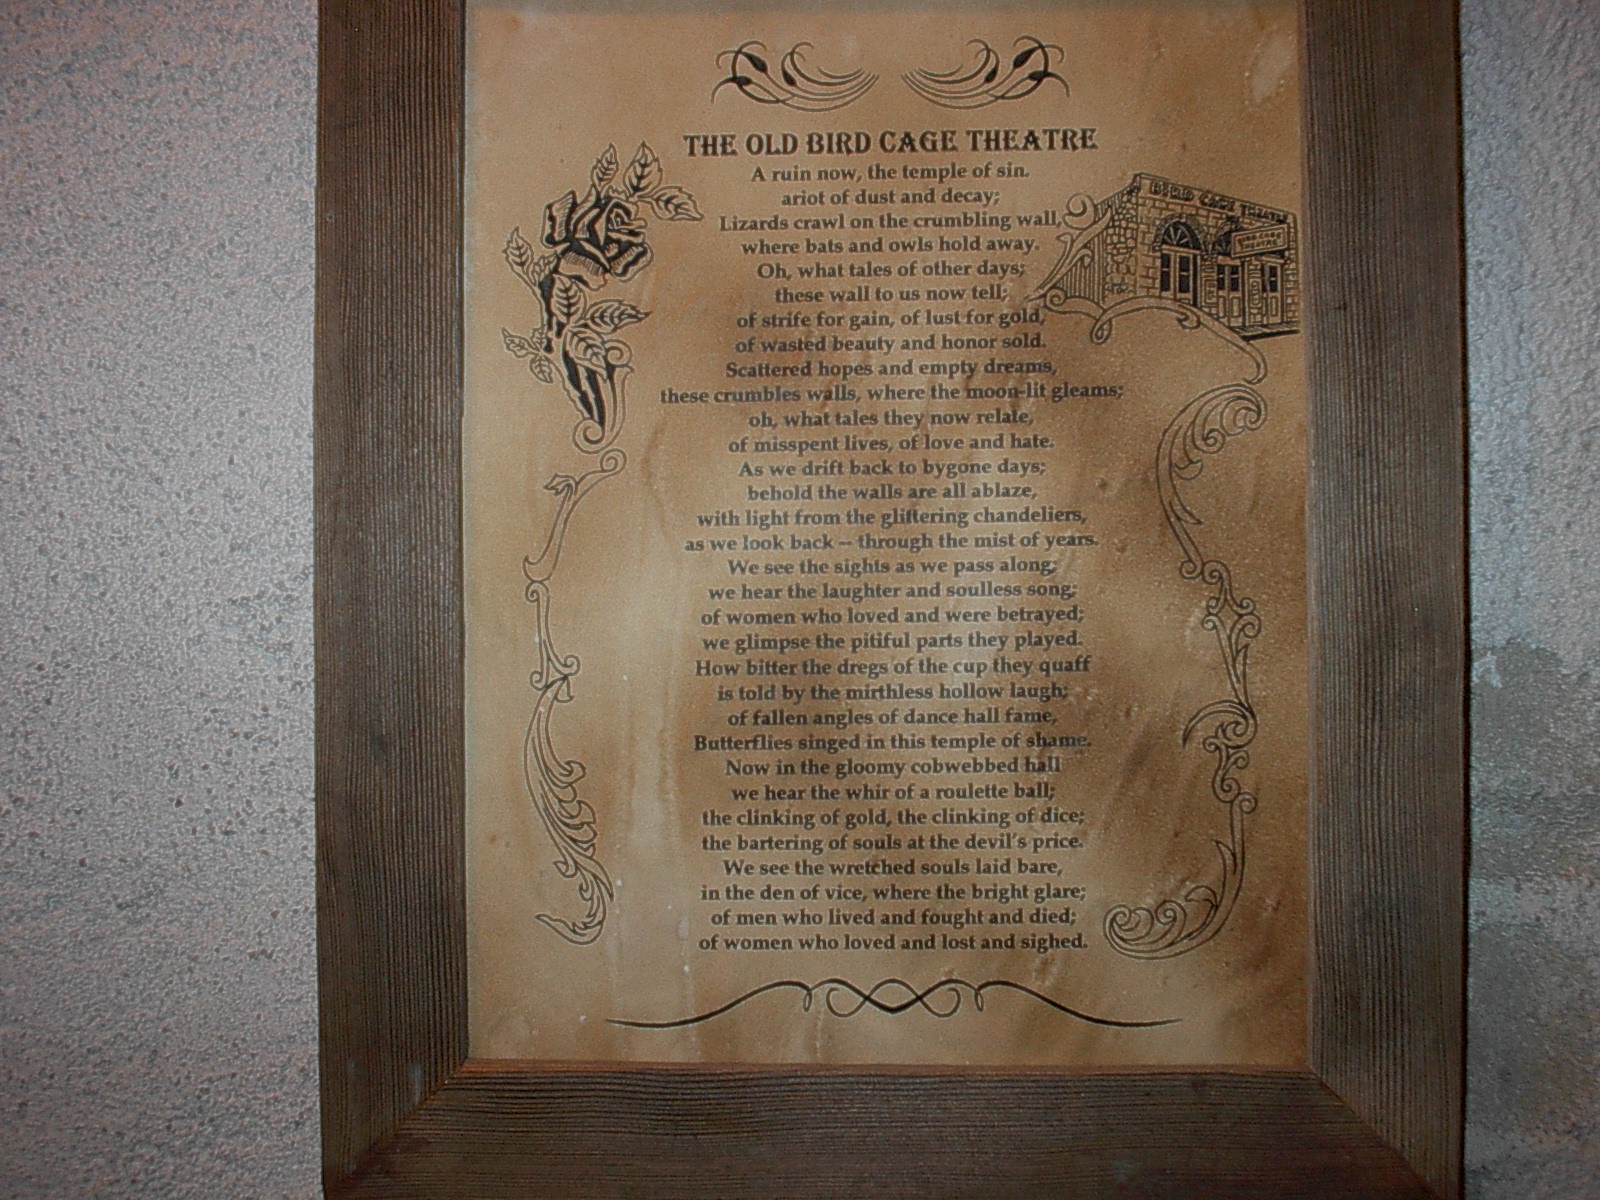 THE OLD BIRD CAGE THEATRE
A ruin now, the temple of sin.
ariot of dust and decay;
Lizards crawl on the crumbling wall,
where bats and owls hold away.
Oh, what tales of other days;
these wall to us now tell;
of strife for gain, of lust for gold,
of wasted beauty and honor sold.
Scattered hopes and empty dreams,
these crumbles walls, where the moon-lit gleams;
oh, what tales they now relate,
of misspent lives, of love and hate.
As we drift back to bygone days;
behold the walls are all ablaze,
with light from the glittering chandeliers,
as we look back – through the mist of years.
We see the sights as we pass along;
we hear the laughter and soulless song;
of women who loved and were betrayed;
we glimpse the pitiful parts they played.
How bitter the dregs of the cup they quaff
is told by the mirthless hollow laugh;
of fallen angles of dance hall fame,
Butterflies singed in this temple of shame.
Now in the gloomy cobwebbed hall
we hear the whir of a roulette ball;
the clinking of gold, the clinking of dice;
the bartering of souls at the devil's price.
We see the wretched souls laid bare,
in the den of vice, where the bright glare;
of men who lived and fought and died;
of women who loved and lost and sighed.
BIRD CAGE THEATRE
BIRD CAGE
THEATRE